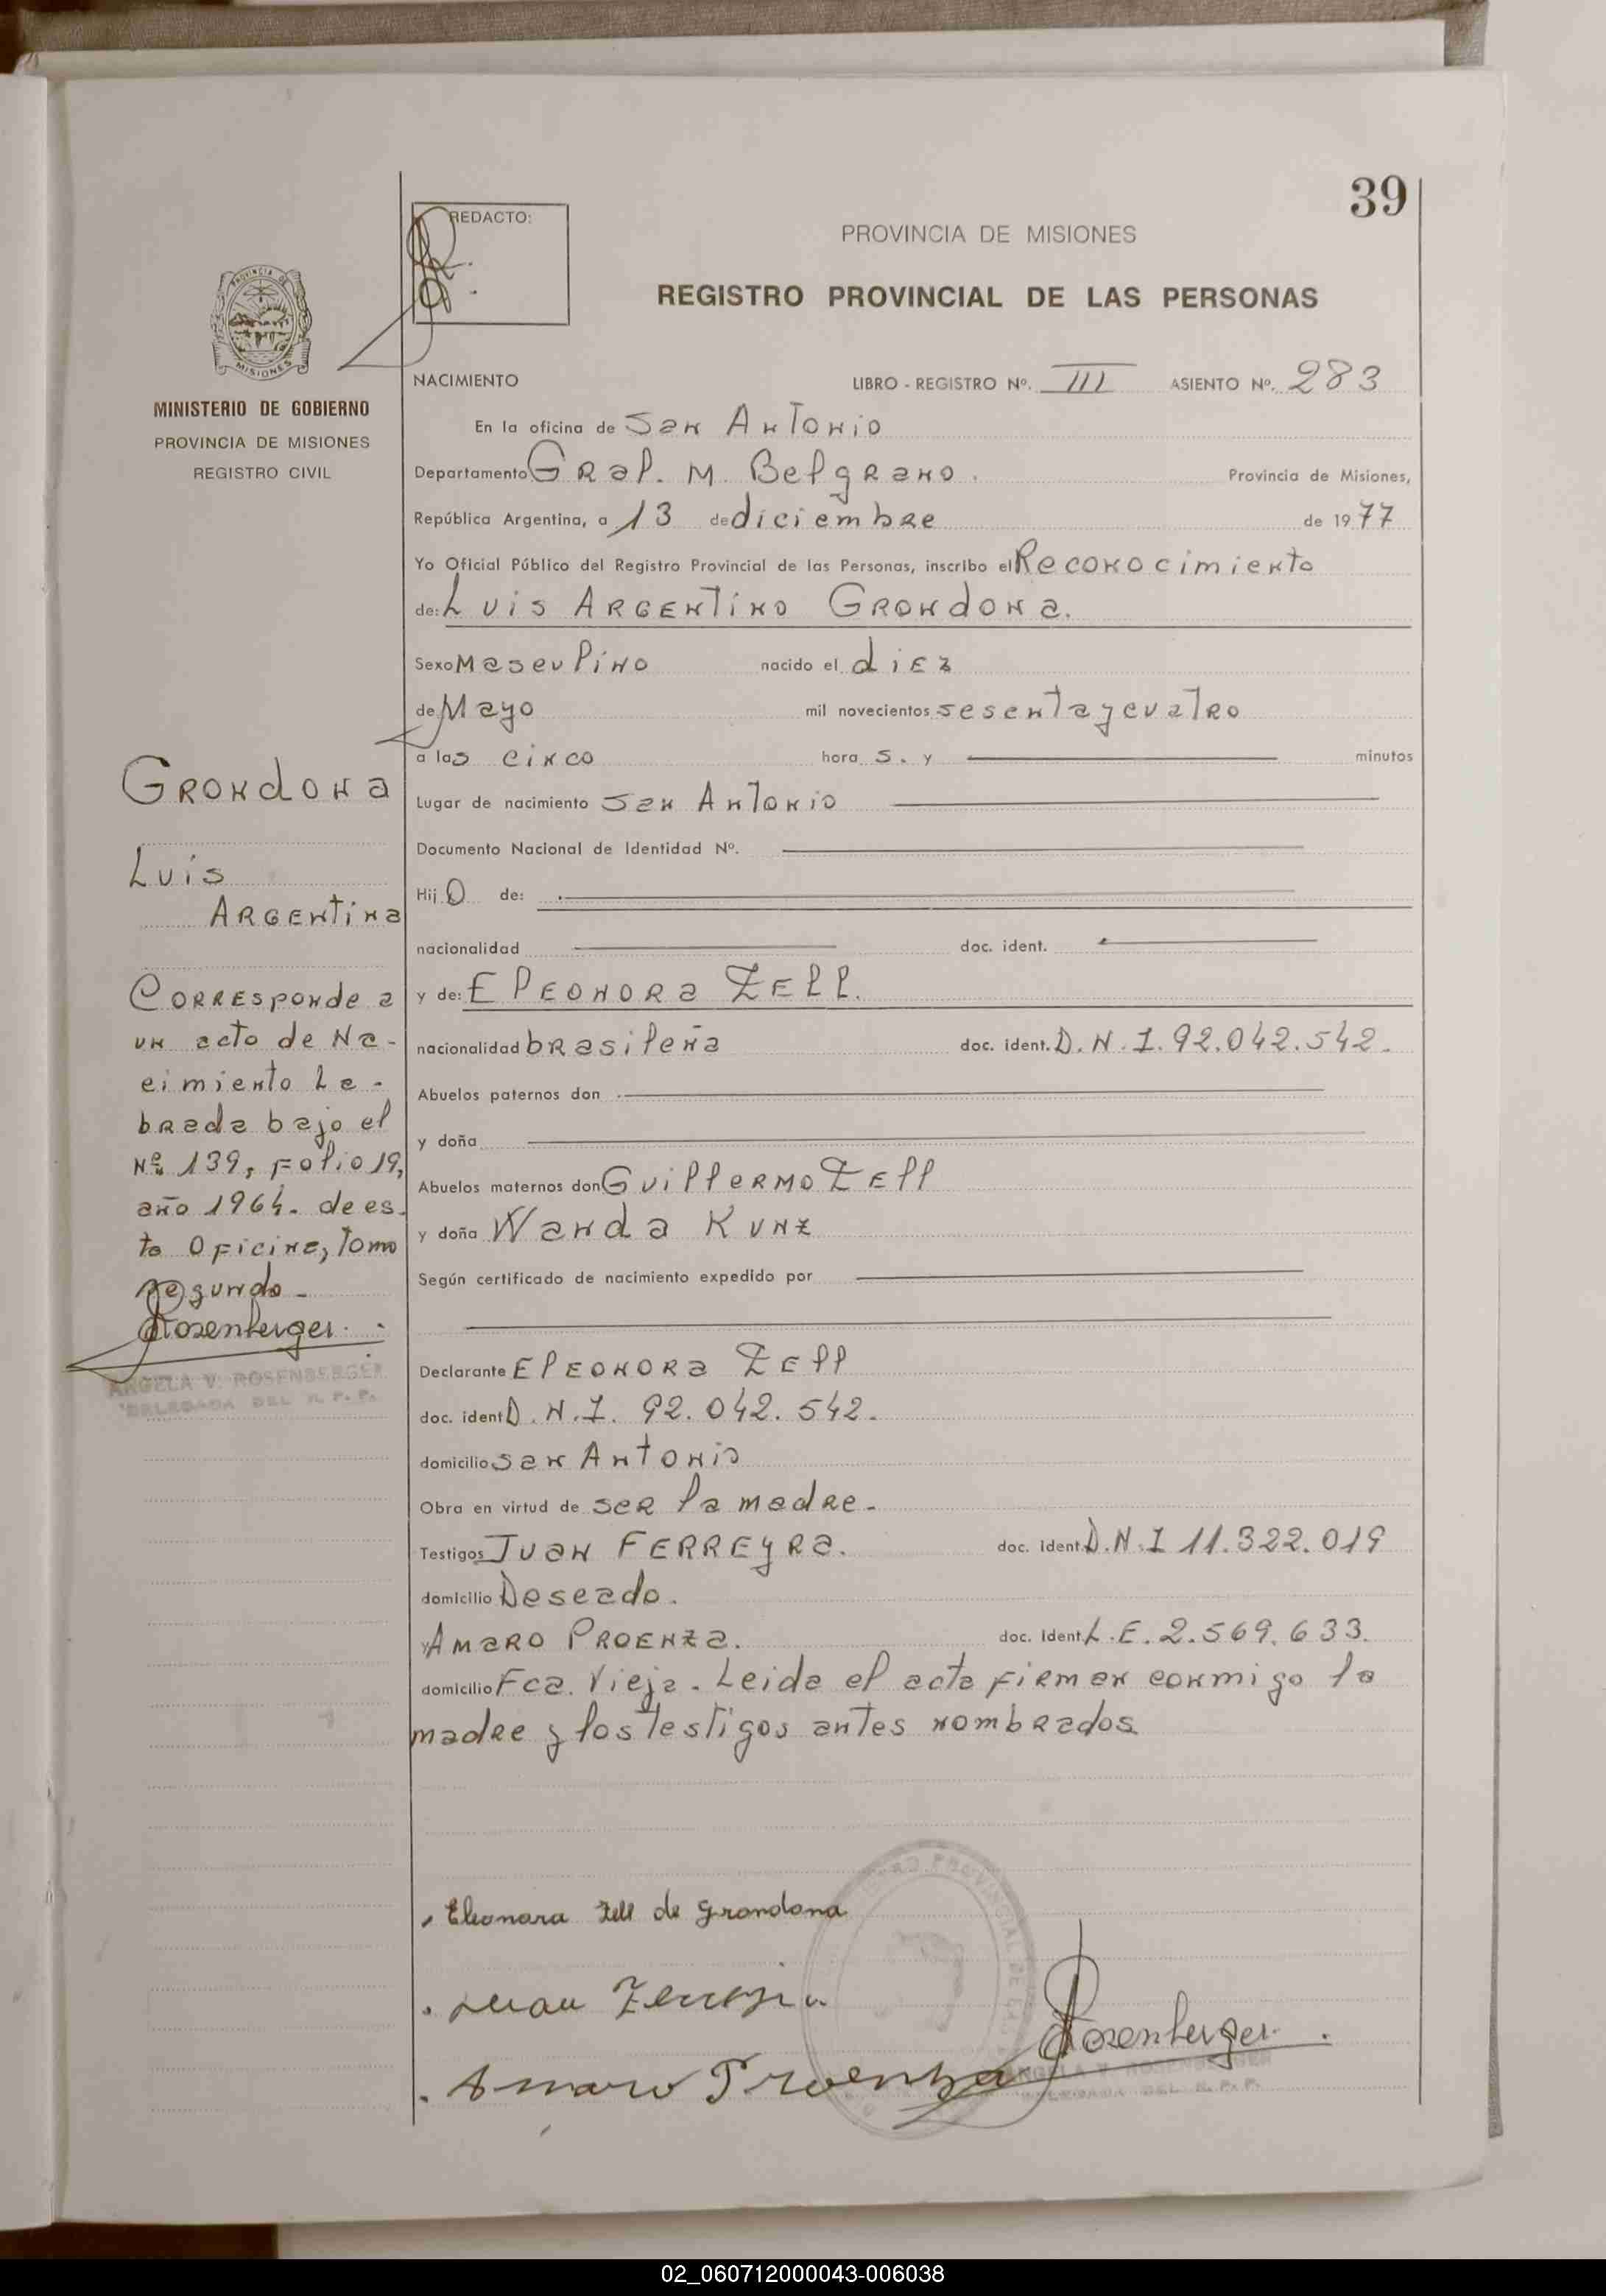 39
REDACTO:
PROVINCIA DE MISIONES
REGISTRO PROVINCIAL DE LAS PERSONAS
PROVINCIA DE
MISIONES
MINISTERIO DE GOBIERNO
PROVINCIA DE MISIONES
REGISTRO CIVIL
NACIMIENTO LIBRO - REGISTRO Nº. III ASIENTO Nº. 283
En la oficina de San Antonio
Departamento Gral. M. Belgrano. Provincia de Misiones,
República Argentina, a 13 de diciembre de 1977
Yo Oficial Público del Registro Provincial de las Personas, inscribo el Reconocimiento
de: Luis Argentino Grondona.
Sexo Masculino nacido el diez
de Mayo mil novecientos sesentaycuatro
a las cinco hora s. y minutos
Lugar de nacimiento San Antonio
Documento Nacional de Identidad Nº.
Hij o de:
nacionalidad doc. ident.
y de: Eleonora Zell.
nacionalidad brasileña doc. ident. D.N.I. 92.042.542.
Abuelos paternos don
y doña
Abuelos maternos don Guillermo Zell
y doña Wanda Kunz
Según certificado de nacimiento expedido por
Declarante Eleonora Zell
doc. ident D.N.I. 92.042.542.
domicilio San Antonio
Obra en virtud de ser la madre.
Testigos Juan Ferreyra. doc. ident. D.N.I 11.322.019
domicilio Deseado.
y Amaro Proenza. doc. ident. L.E. 2.569.633.
domicilio Fca. Vieja. Leida el acta firman conmigo la
madre y los testigos antes nombrados
Grondona
Luis
Argentina
Corresponde a
un acto de Na-
cimiento La-
brada bajo el
Nº 139, Folio 19,
año 1964. de es-
ta Oficina, Tomo
segundo-
Rosenberger.
ANGELA V. ROSENBERGER
DELEGADA DEL R. P. P.
Eleonara Zell de Grondona
Juan Ferreyra
Amaro Proenza
Rosenberger.
ANGELA V. ROSENBERGER
DELEGADA DEL R. P. P.
02_060712000043-006038